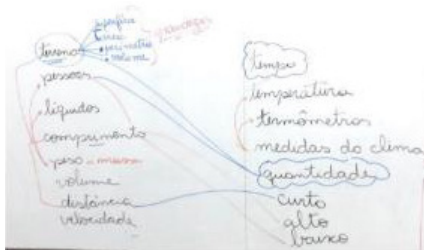 superfície
área
perímetro
volume
terreno
pessoas
líquidos
comprimento
peso - massa
volume
distância
velocidade
tempo
temperatura
termômetros
medidas do clima
quantidade
curto
alto
baixo